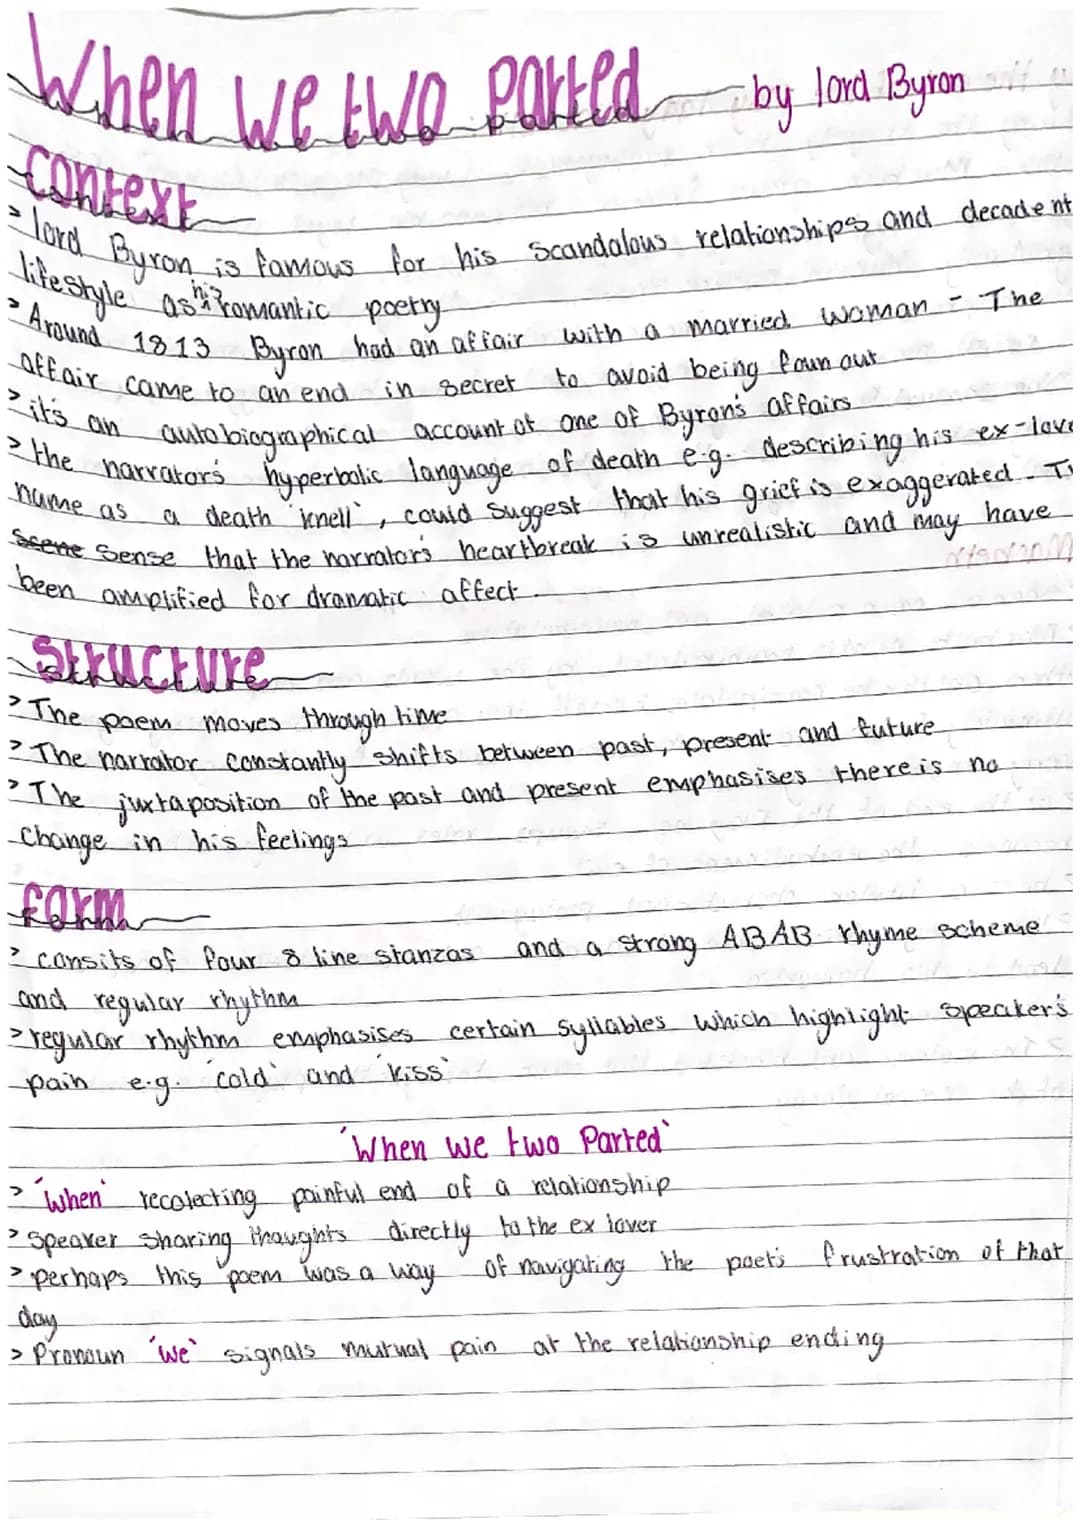 When we two parted - by lord Byron
Context
> lord Byron is famous for his scandalous relationships and decadent
lifestyle as his romantic poetry
> Around 1813 Byron had an affair with a married woman - The
affair came to an end in secret to avoid being foun out
> it's an autobiographical account of one of Byron's affairs
> the narrator's hyperbolic language of death e.g. describing his ex-love
name as a death 'knell', could suggest that his grief is exaggerated.
Scene Sense that the narrator's heartbreak is unrealistic and may have
been amplified for dramatic affect.
Structure
> The poem moves through time
> The narrator constantly shifts between past, present and future
> The juxtaposition of the past and present emphasises there is no
change in his feelings
form
> consits of four 8 line stanzas and a strong ABAB rhyme scheme
and regular rhythm
> regular rhythm emphasises certain syllables which highlight speaker's
pain e.g. 'cold' and 'kiss'
'When we two Parted'
> 'When' recolecting painful end of a relationship
> Speaker sharing thoughts directly to the ex lover
> perhaps this poem was a way of navigating the poet's frustration of that
day
> Pronoun 'we' signals mutual pain at the relationship ending